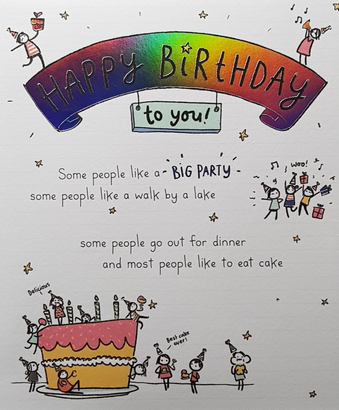 HAPPY BiRTHDAY
to you!
Some people like a - BIG PARTY -
some people like a walk by a lake
woo!
some people go out for dinner
and most people like to eat cake
Delicious
Best cake
ever!